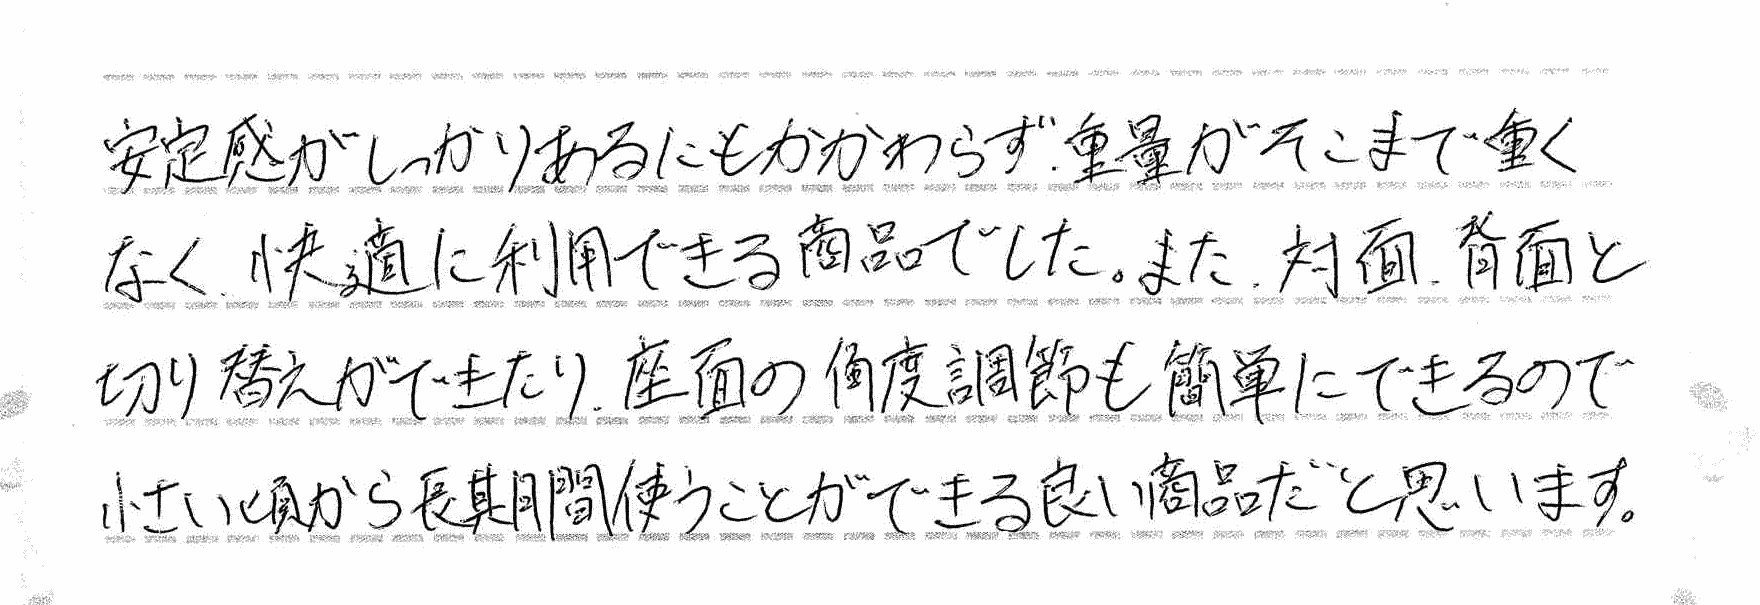 安定感がしっかりあるにもかかわらず、重量がそこまで重く
なく、快適に利用できる商品でした。また、対面、背面と
切り替えができたり、座面の角度調節も簡単にできるので
小さい頃から長期間使うことができる良い商品だと思います。